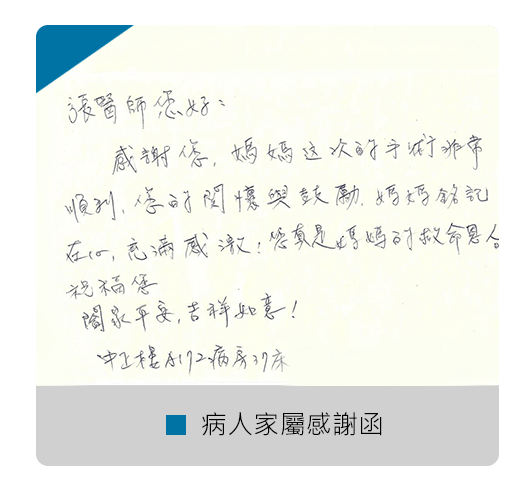 張醫師您好：
感謝您，媽媽这次的手術非常
順利，您的関懷與鼓勵，媽媽銘記
在心，充滿感激！您真是媽媽的救命恩人
祝福您
闔家平安，吉祥如意！
中正樓A172病房37床
病人家屬感謝函